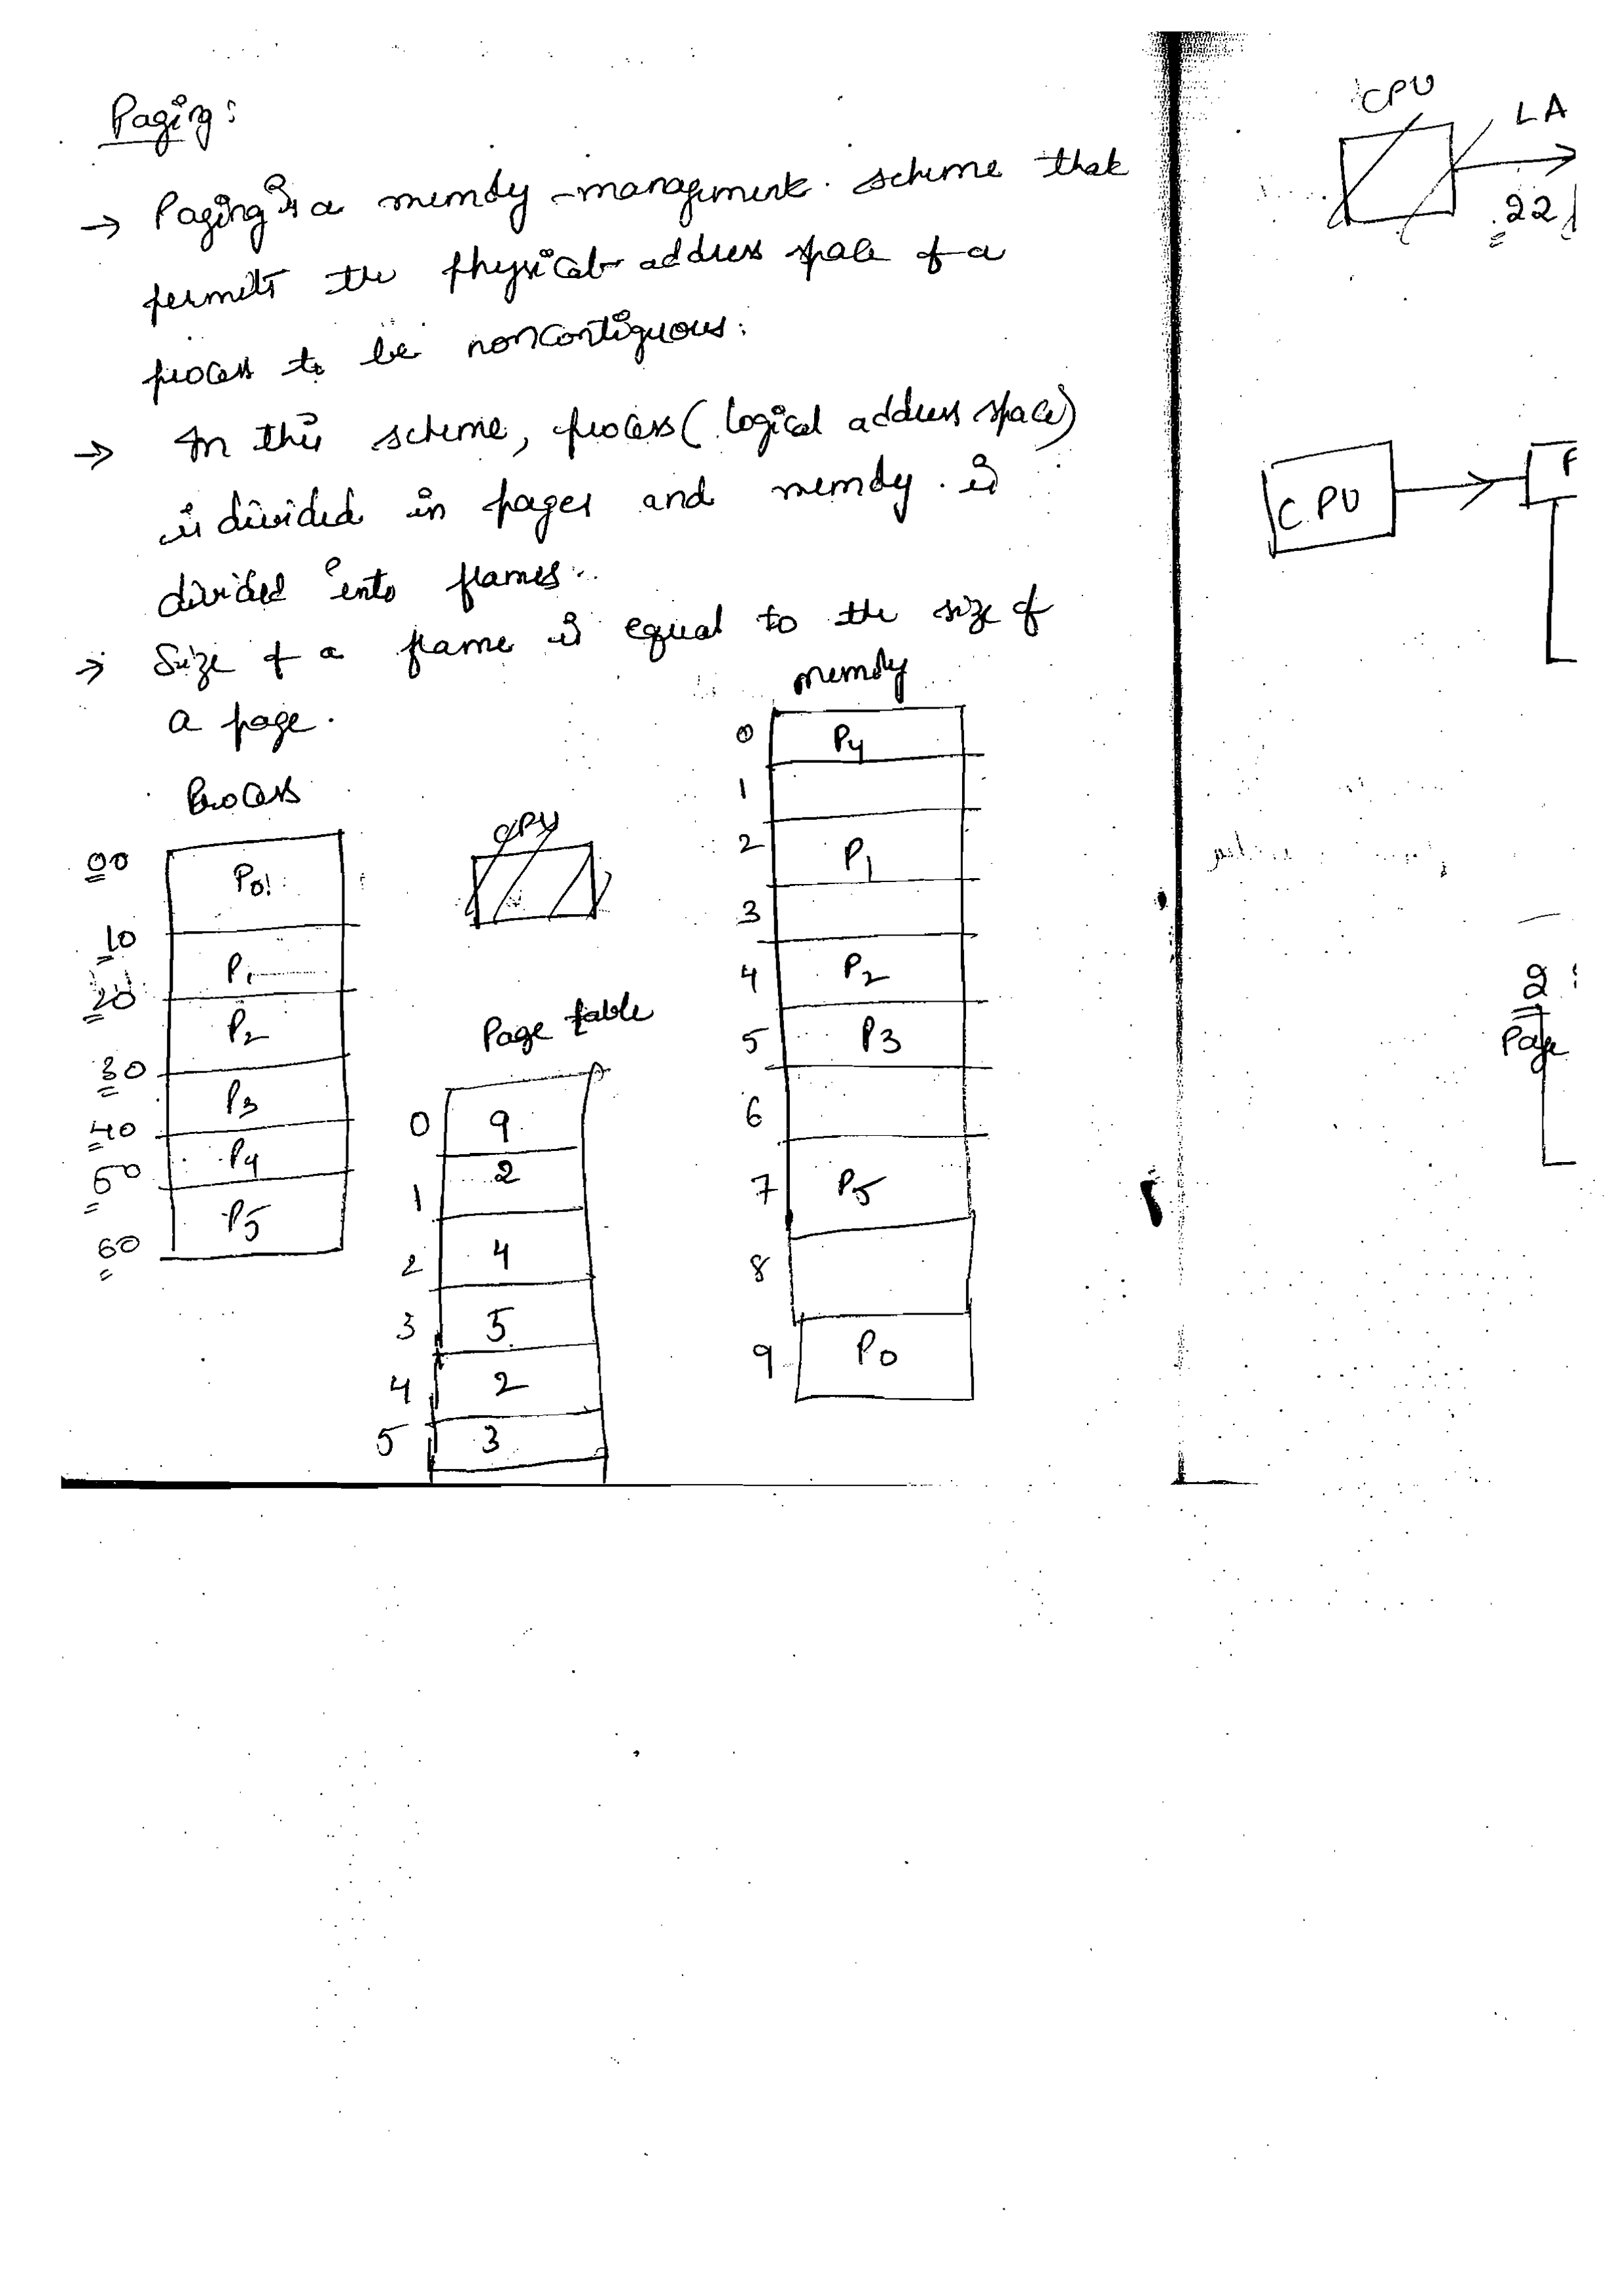 Paging:
→ Paging is a memory-management scheme that
permits the physical address space of a
process to be noncontiguous.
→ In this scheme, process (logical address space)
is divided in pages and memory is
divided into frames.
→ Size of a frame is equal to the size of
a page.
Process
00
P0
10
P1
20
P2
30
P3
40
P4
50
P5
60
CPU
Page table
0 9
1 2
2 4
3 5
4 2
5 3
memory
0 P4
1
2 P1
3
4 P2
5 P3
6
7 P5
8
9 P0
CPU
LA
22
CPU
2
Page